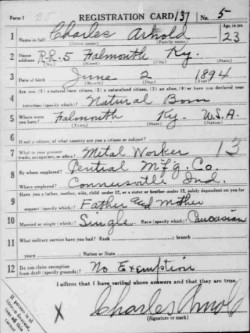 Form 1 REGISTRATION CARD 131 No. 5
1 Name in full Charles Arnold Age, in yrs. 23
2 Home address R.R. 5 Falmouth Ky.
3 Date of birth June 2 1894
4 Are you (1) a natural born citizen, (2) a naturalized citizen, (3) an alien, (4) or have you declared your intention (specify which)? Natural Born
5 Where were you born? Falmouth Ky. U.S.A.
6 If not a citizen, of what country are you a citizen or subject?
7 What is your present trade, occupation, or office? Metal Worker 13
8 By whom employed? Central Mf'g. Co.
Where employed? Connersville Ind.
9 Have you a father, mother, wife, child under 12, or a sister or brother under 12, solely dependent on you for support (specify which)? Father and Mother
10 Married or single (which)? Single Race (specify which)? Caucasian
11 What military service have you had? Rank branch
years Nation or State
12 Do you claim exemption from draft (specify grounds)? No Exemption
I affirm that I have verified above answers and that they are true.
X Charles Arnold
(Signature or mark)